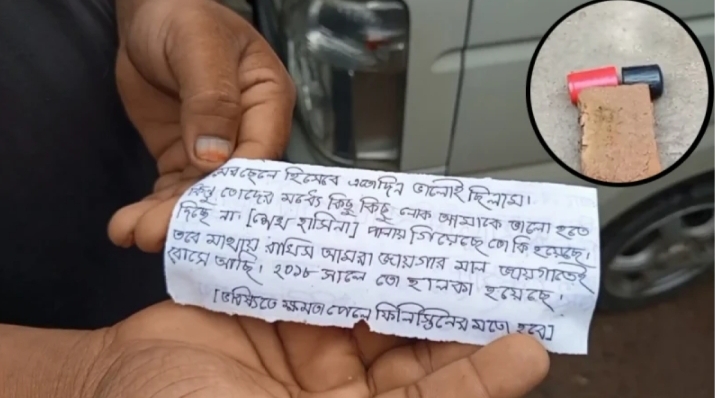 মেরছেলে হিসেবে এতোদিন ভালোই ছিলাম।
কিন্তু তোদের মধ্যে কিছু কিছু লোক আমাকে ভালো হতে
দিছে না। [শেখ হাসিনা] পালায় গিয়েছে তো কি হয়েছে।
তবে মাথায় রাখিস আমরা জায়গার মাল জায়গাতেই
বোসে আছি। ২০১৮ সালে তো হালকা হয়েছে।
[ভবিষ্যতে ক্ষমতা পেলে ফিলিস্তিনের মতো হবে]